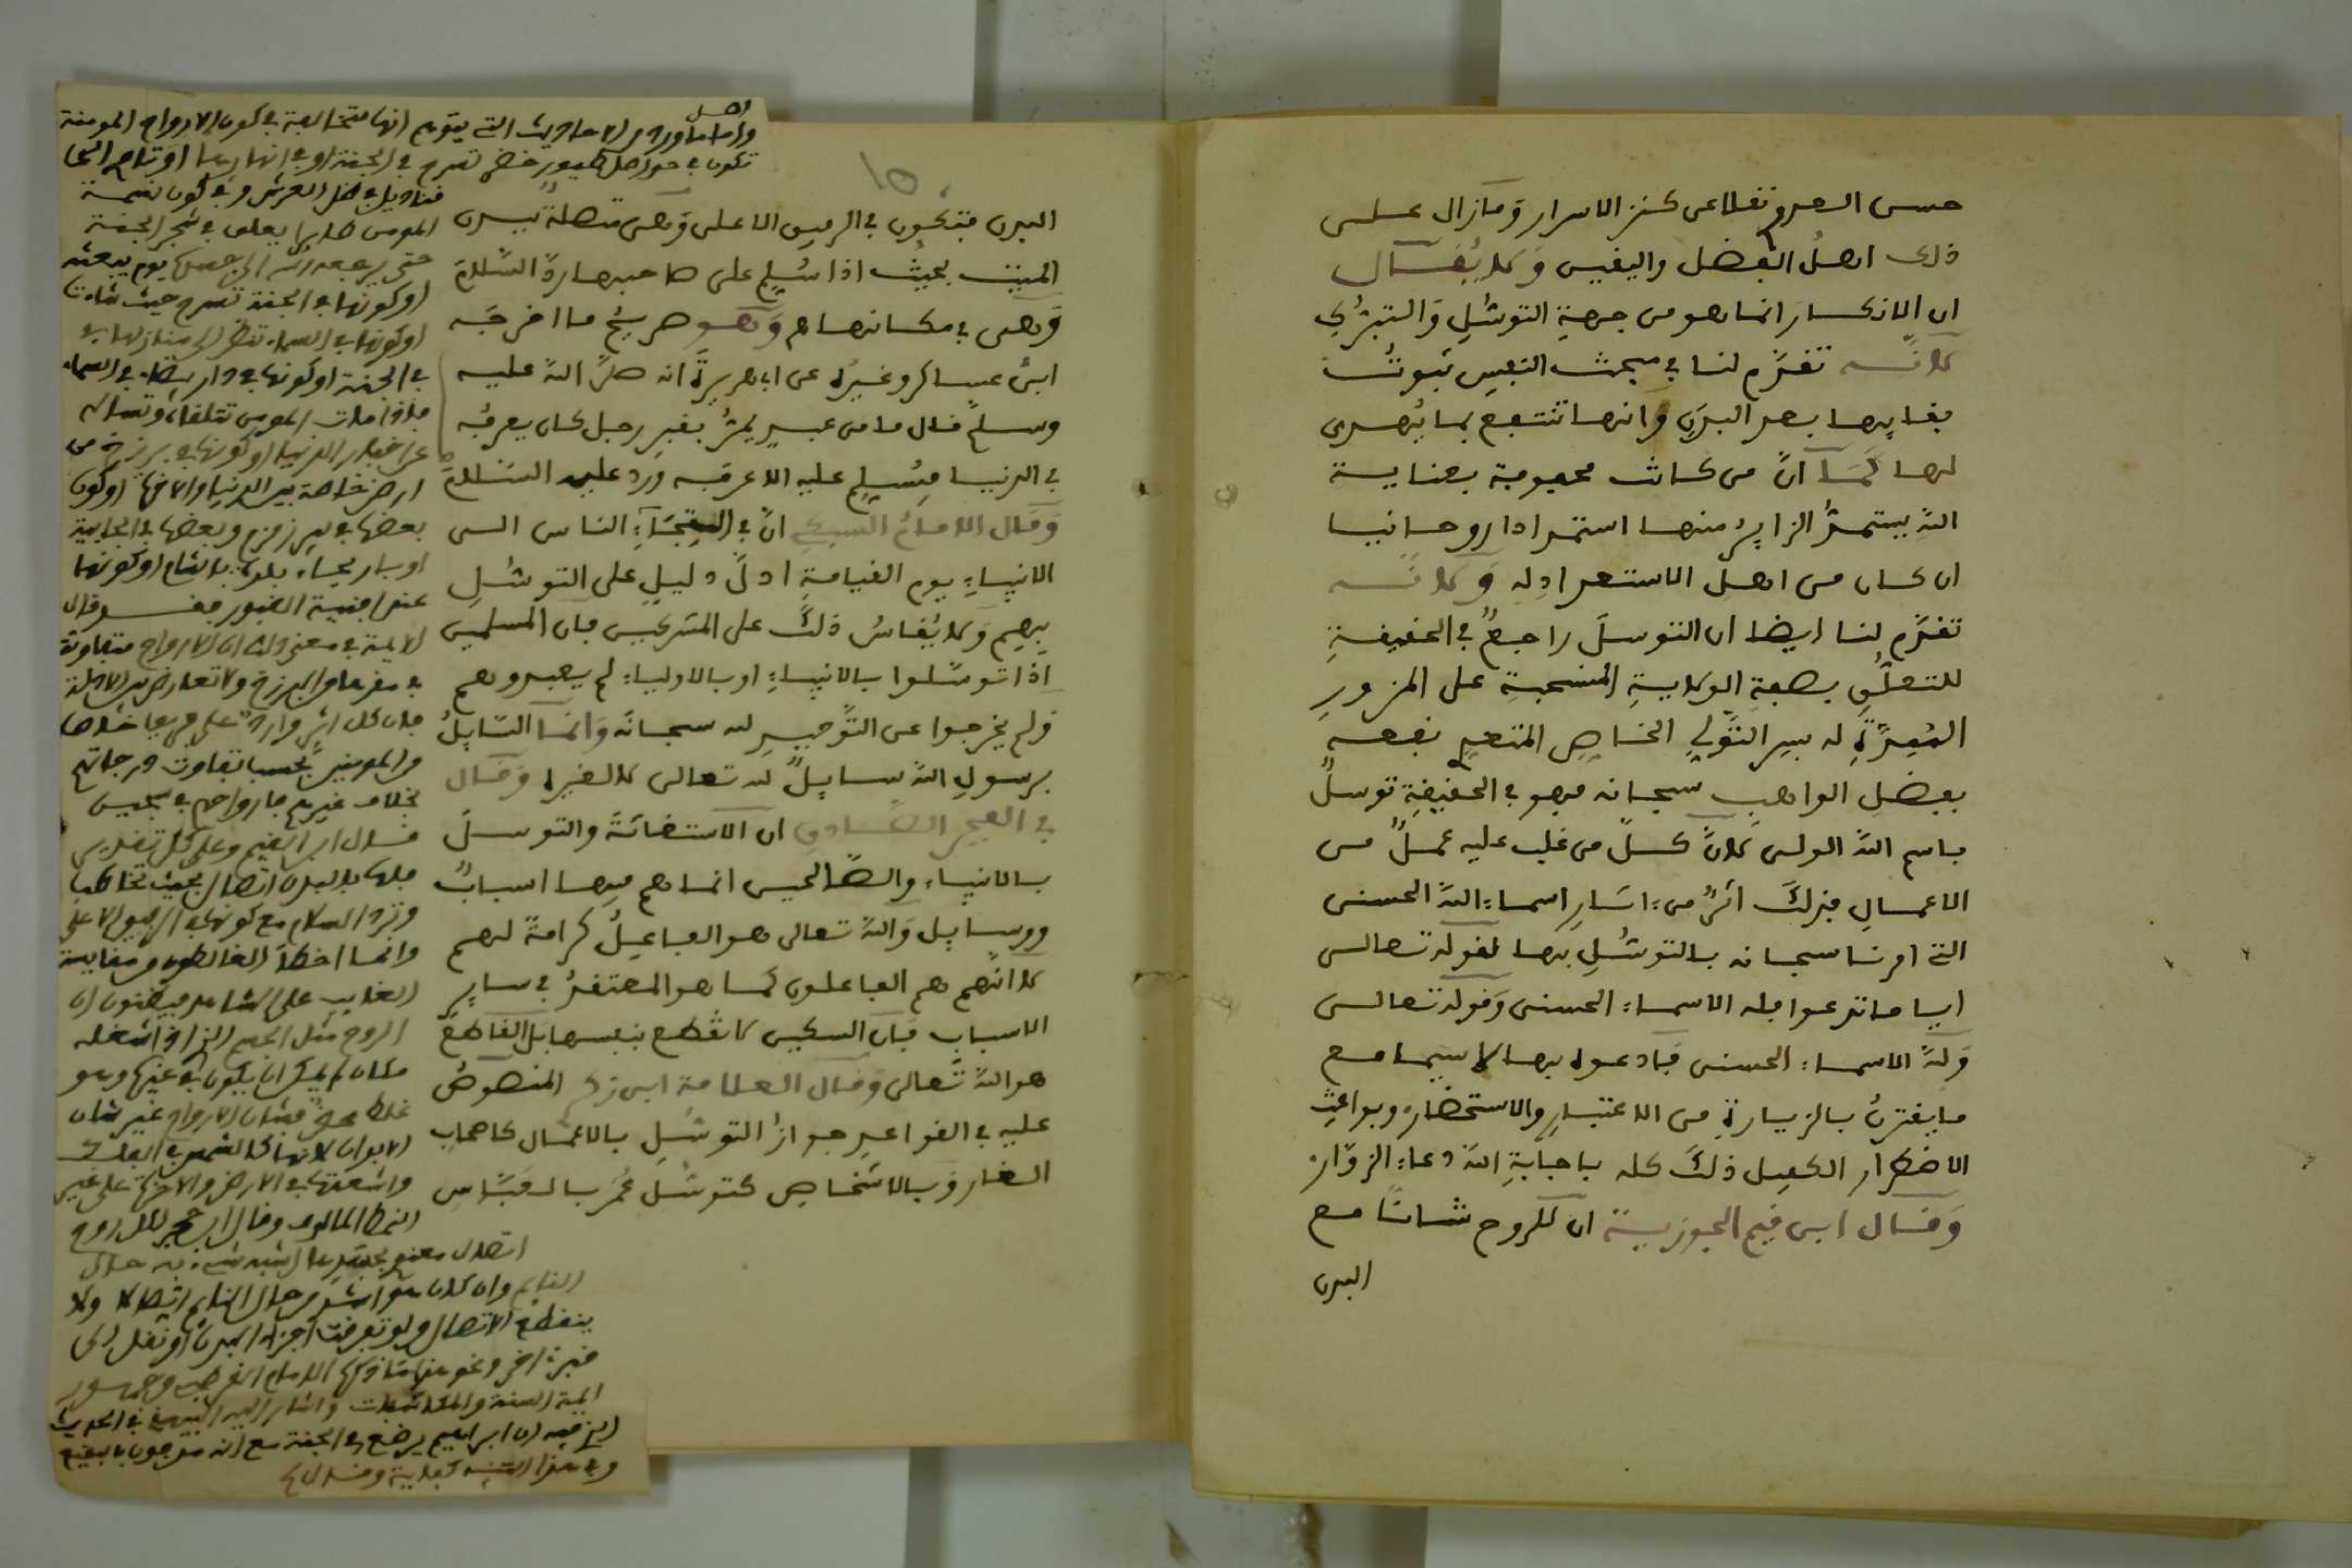 حسن العدو نقلا عن كنز الاسرار وَمَازال عـلـى
ذلك اهلُ الفضل واليقين وَلا يُقـال
ان الانكسار انما هو من جهةِ التوسُلِ وَالتبرُكِ
لانـه تقدَّم لنا في مبحث النفس ثبوتُ
بقايها بعد البدَنِ وَانها تنتفع بما يُهدى
لها كَمَا انَّ من كانت محبوبة بعناية
اللهِ يستمدُّ الزايرُ منها استمدادا روحانيا
ان كان من اهل الاستعدادِ له وَلانـه
تقدَّم لنا ايضا ان التوسلَ راجعٌ في الحقيقةِ
للتعلُّقِ بصفةِ الولايةِ المنسحبةِ على المزورِ
له بسر التولِّي الخاصِ
بفضلِ الواهب سبحانه فهو في الحقيقةِ توسلٌ
باسم اللهِ الولى لانَّ كـلَّ من غلب عليه عملٌ من
الاعمالِ فذلكَ اثرٌ من اسماءِ اللهِ الحسنى
التي امرنا سبحانه بالتوسُلِ بها لقوله تعالى
ايا ما تدعوا فله الاسماء الحسنى وَقوله تعالى
وَللهِ الاسماء الحسنى فَادعوه بها لاسيما مع
ما يقترنُ بالزيارةِ من الاعتبارِ والاستحضار وبواعثِ
الاضطرار الكفيل ذلكَ كله باجابةِ اللهِ دعاء الزوّار
وَقـال ابن قيم الجوزية ان للروح شانًا مع
البدن
١٥
البدن فتكون في الرفيق الاعلى وَهى متصلة ببدن
الميت بحيث اذا سُلِّم على صاحبها ردَّ السَّلامَ
وَهى في مكانها وَهـو صريح ما اخرجَه
ابنُ عساكر وغيرُه عن ابى هريرةَ انه صلى اللهُ عليه
وسلم قال ما من عبدٍ يمرُّ بقبرِ رجل كان يعرفُه
في الدنيا فيُسلِم عليه الا عرفه ورد عليه السَّلامَ
وَقَال الامامُ السبكى انَّ في التجَاءِ الناس الى
الانبياءِ يوم القيامةِ ادلَّ دليلٍ على التوسُلِ
بهِم وَلا يُقاسُ ذلكَ على المشركين فان المسلمين
اذا توسَّلوا بالانبياءِ او بالاولياء لم يعبدوهم
وَلم يخرجوا عن التَّوحيدِ لله سبحانَه وَانمَا السَّايلُ
برسولِ اللهِ سايلٌ لله تعالى لا لغيره وَقَـال
في الفجر الصَّادق ان الاستغاثةَ والتوسلَ
بالانبياء والصَّالحين انما هم فيها اسبابٌ
ووسايل وَاللهُ تعالى هو الفاعلُ كرامةً لهم
لا انَّهم هم الفاعلون كما هو المعتقدُ في ساير
الاسباب فَان السكين لا تقطع بنفسها بل القاطعُ
هو اللهُ تعالى وَقـال العلامة ابن زكـ المنصوصُ
عليه في القواعدِ جوازُ التوسُلِ بالاعمال كاصحاب
الغار وَبالاشخاصِ كتوسُّلِ عُمَرَ بالعَبَّاس
واما ما ورد من الاحاديث التي يتوهم انها متخالفة في كون الارواح المومنة
تكون في حواصل طيور خضر تسرح في الجنة او في انهارها او تاوى الى
قناديل في ظل العرش وفي كون نسمة
المومن طايرا يعلق في شجر الجنة
حتى يرجعه الله الى جسده يوم يبعثه
او كونها في الجنة تسرح حيث شاءت
او كونها في السماء تنظر الى منازلها
في الجنة او كونها في دار بيضاء في السماء
فاذا مات المومن تتلقاه وتساله
عن اخبار الدنيا او كونها في برزخ من
ارض خاصة بين الدنيا والاخرة او كون
بعضها في بير زمزم وبعضها في الجابية
او كونها
عند افنية القبور فقـد قال
الايمة في معنى ذلك ان الارواح متفاوتة
في مقرها في البرزخ ولا تعارض بين الادلة
فان كل اثر وارد على فريق
من المومنين بحسب تفاوت درجاتهم
بخلاف غيرهم فارواحهم في سجين
قـال ابن القيم وعلى كل تقدير
فلها بالبدن اتصال بحيث تخاطب
وترد السلام مع كونها في الرفيق الاعلى
وانما اخطأ الغالطون من مقايسة
الغايب على الشاهد فيظنون ان
الروح مثل الجسم الذي اذا شغل
مكان لم يمكن ان يكون في غيره وهو
غلط محض فشان الارواح غير شان
الابدان لانها كالشمس في الفلك
واشعتها في الارض
وقال ابن حجر لكل روح
اتصال معنوي بجسدها اشبه شيء به حال
النايم وان كان هو اشد من حال النايم اتصالا ولا
ينقطع الاتصال ولو تفرقت اجزاء البدن او نقل الى
قبر اخر ونحو هذا ما ذكره الامام القرطبي وجمهور
ايمة السنة والمكاشفات واشار اليه البيهقي في الحديث
ان ابراهيم يرضع في الجنة مع انه مدفون بالبقيع
وفي هذا التنبيه كفاية وقـال